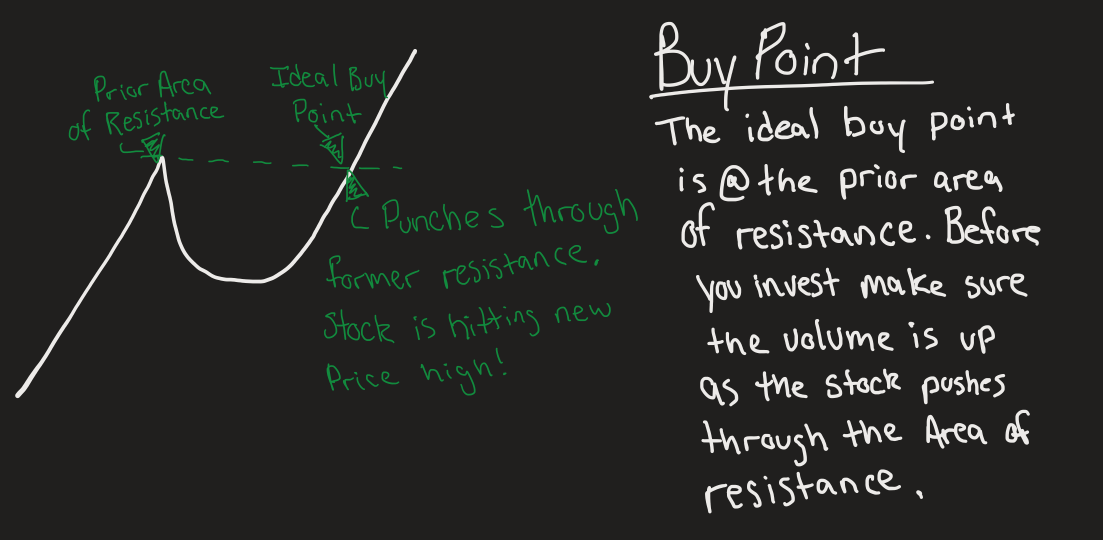 Prior Area
of Resistance
Ideal Buy
Point
Punches through
former resistance.
Stock is hitting new
Price high!
Buy Point
The ideal buy point
is @ the prior area
of resistance. Before
you invest make sure
the volume is up
as the stock pushes
through the Area of
resistance.